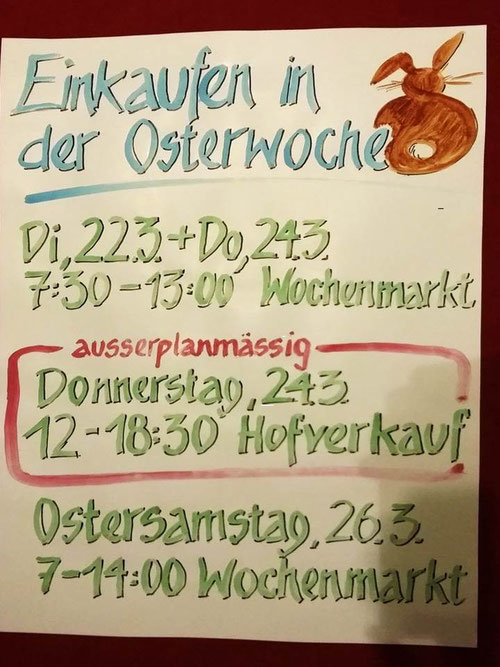 Einkaufen in
der Osterwoche
Di, 22.3. + Do, 24.3.
7:30 - 13:00 Wochenmarkt
ausserplanmässig
Donnerstag, 24.3.
12 - 18:30 Hofverkauf
Ostersamstag, 26.3.
7 - 14:00 Wochenmarkt